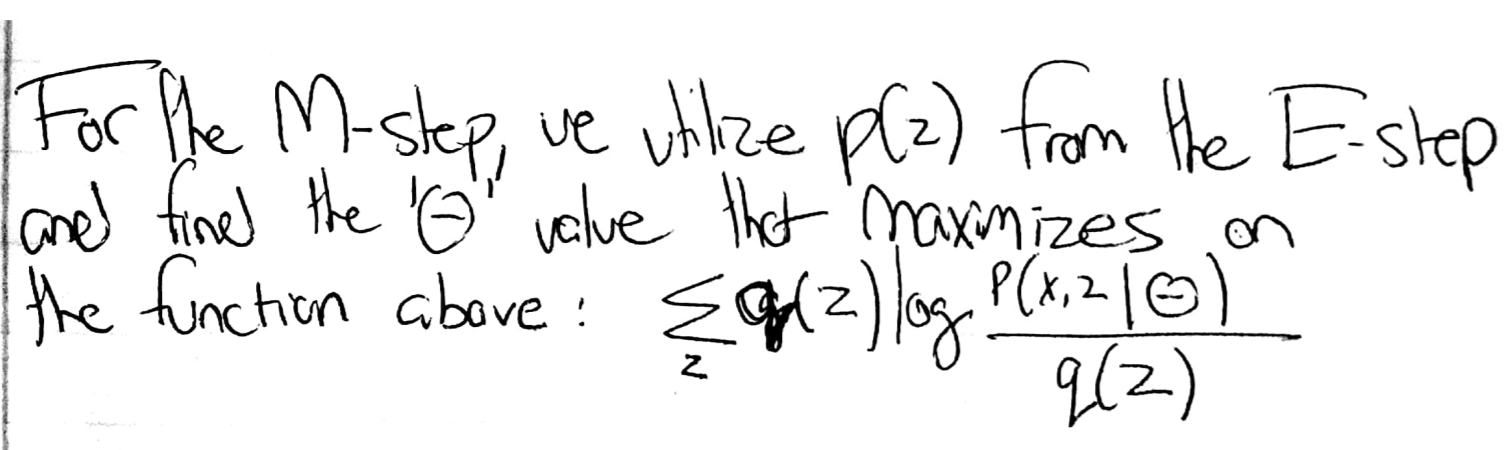 For the M-step, we utilize p(z) from the E-step
and find the 'Θ' value that maximizes on
the function above: ∑_z q(z) log P(x,z|Θ) / q(z)